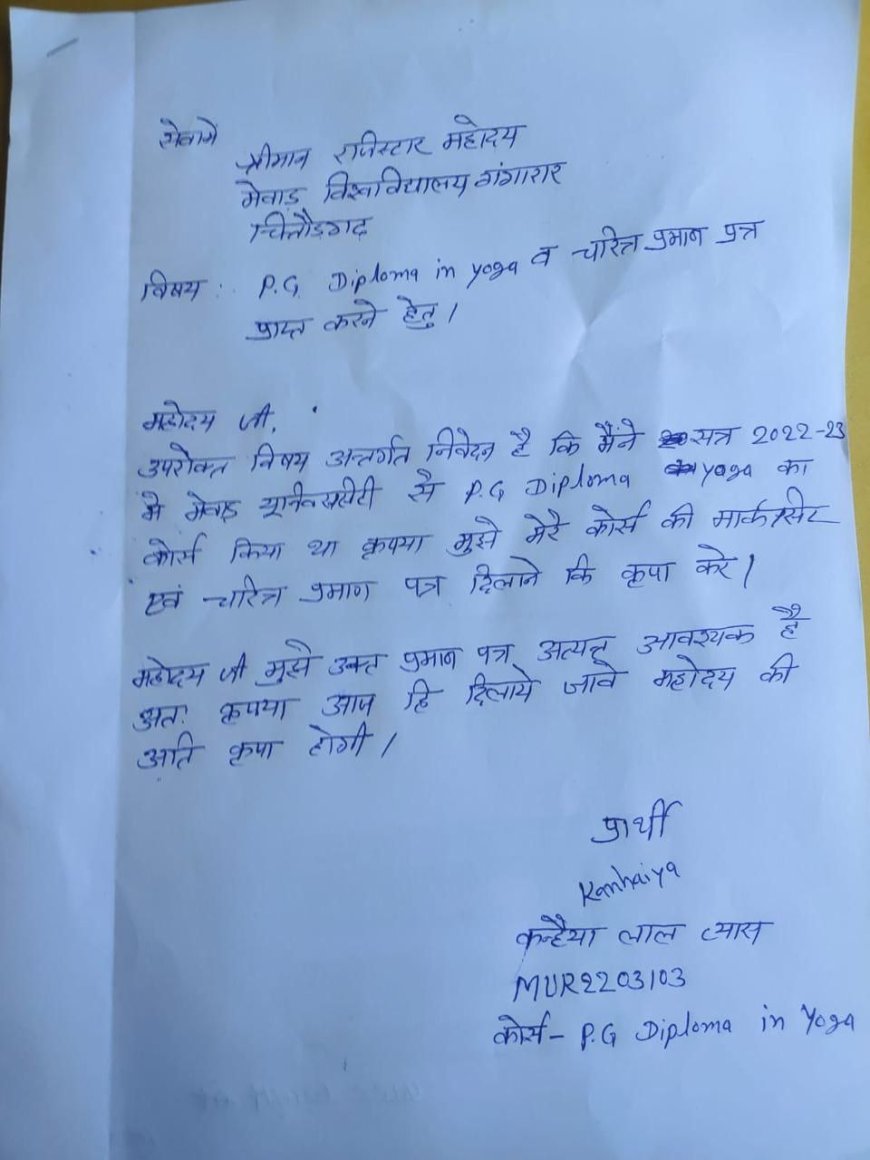 सेवामे
श्रीमान रजिस्टार महोदय
मेवाड़ विश्वविद्यालय गंगारार
चित्तौड़गढ़
विषय : P.G. Diploma in yoga व चारित्र प्रमाण पत्र
प्राप्त करने हेतु।
महोदय जी,
उपरोक्त विषय अन्तर्गत निवेदन है कि मैने सत्र 2022-23
मे मेवाड़ यूनिवरसीटी से P.G Diploma yoga का
कोर्स किया था कृपया मुझे मेरे कोर्स की मार्कसीट
एवं चारित्र प्रमाण पत्र दिलाने कि कृपा करे।
महोदय जी मुझे उक्त प्रमाण पत्र अत्यन्त आवश्यक है
अतः कृपया आज हि दिलाये जावे महोदय की
अति कृपा होगी।
प्रार्थी
Kanhaiya
कन्हैया लाल व्यास
MUR2203103
कोर्स - P.G Diploma in Yoga